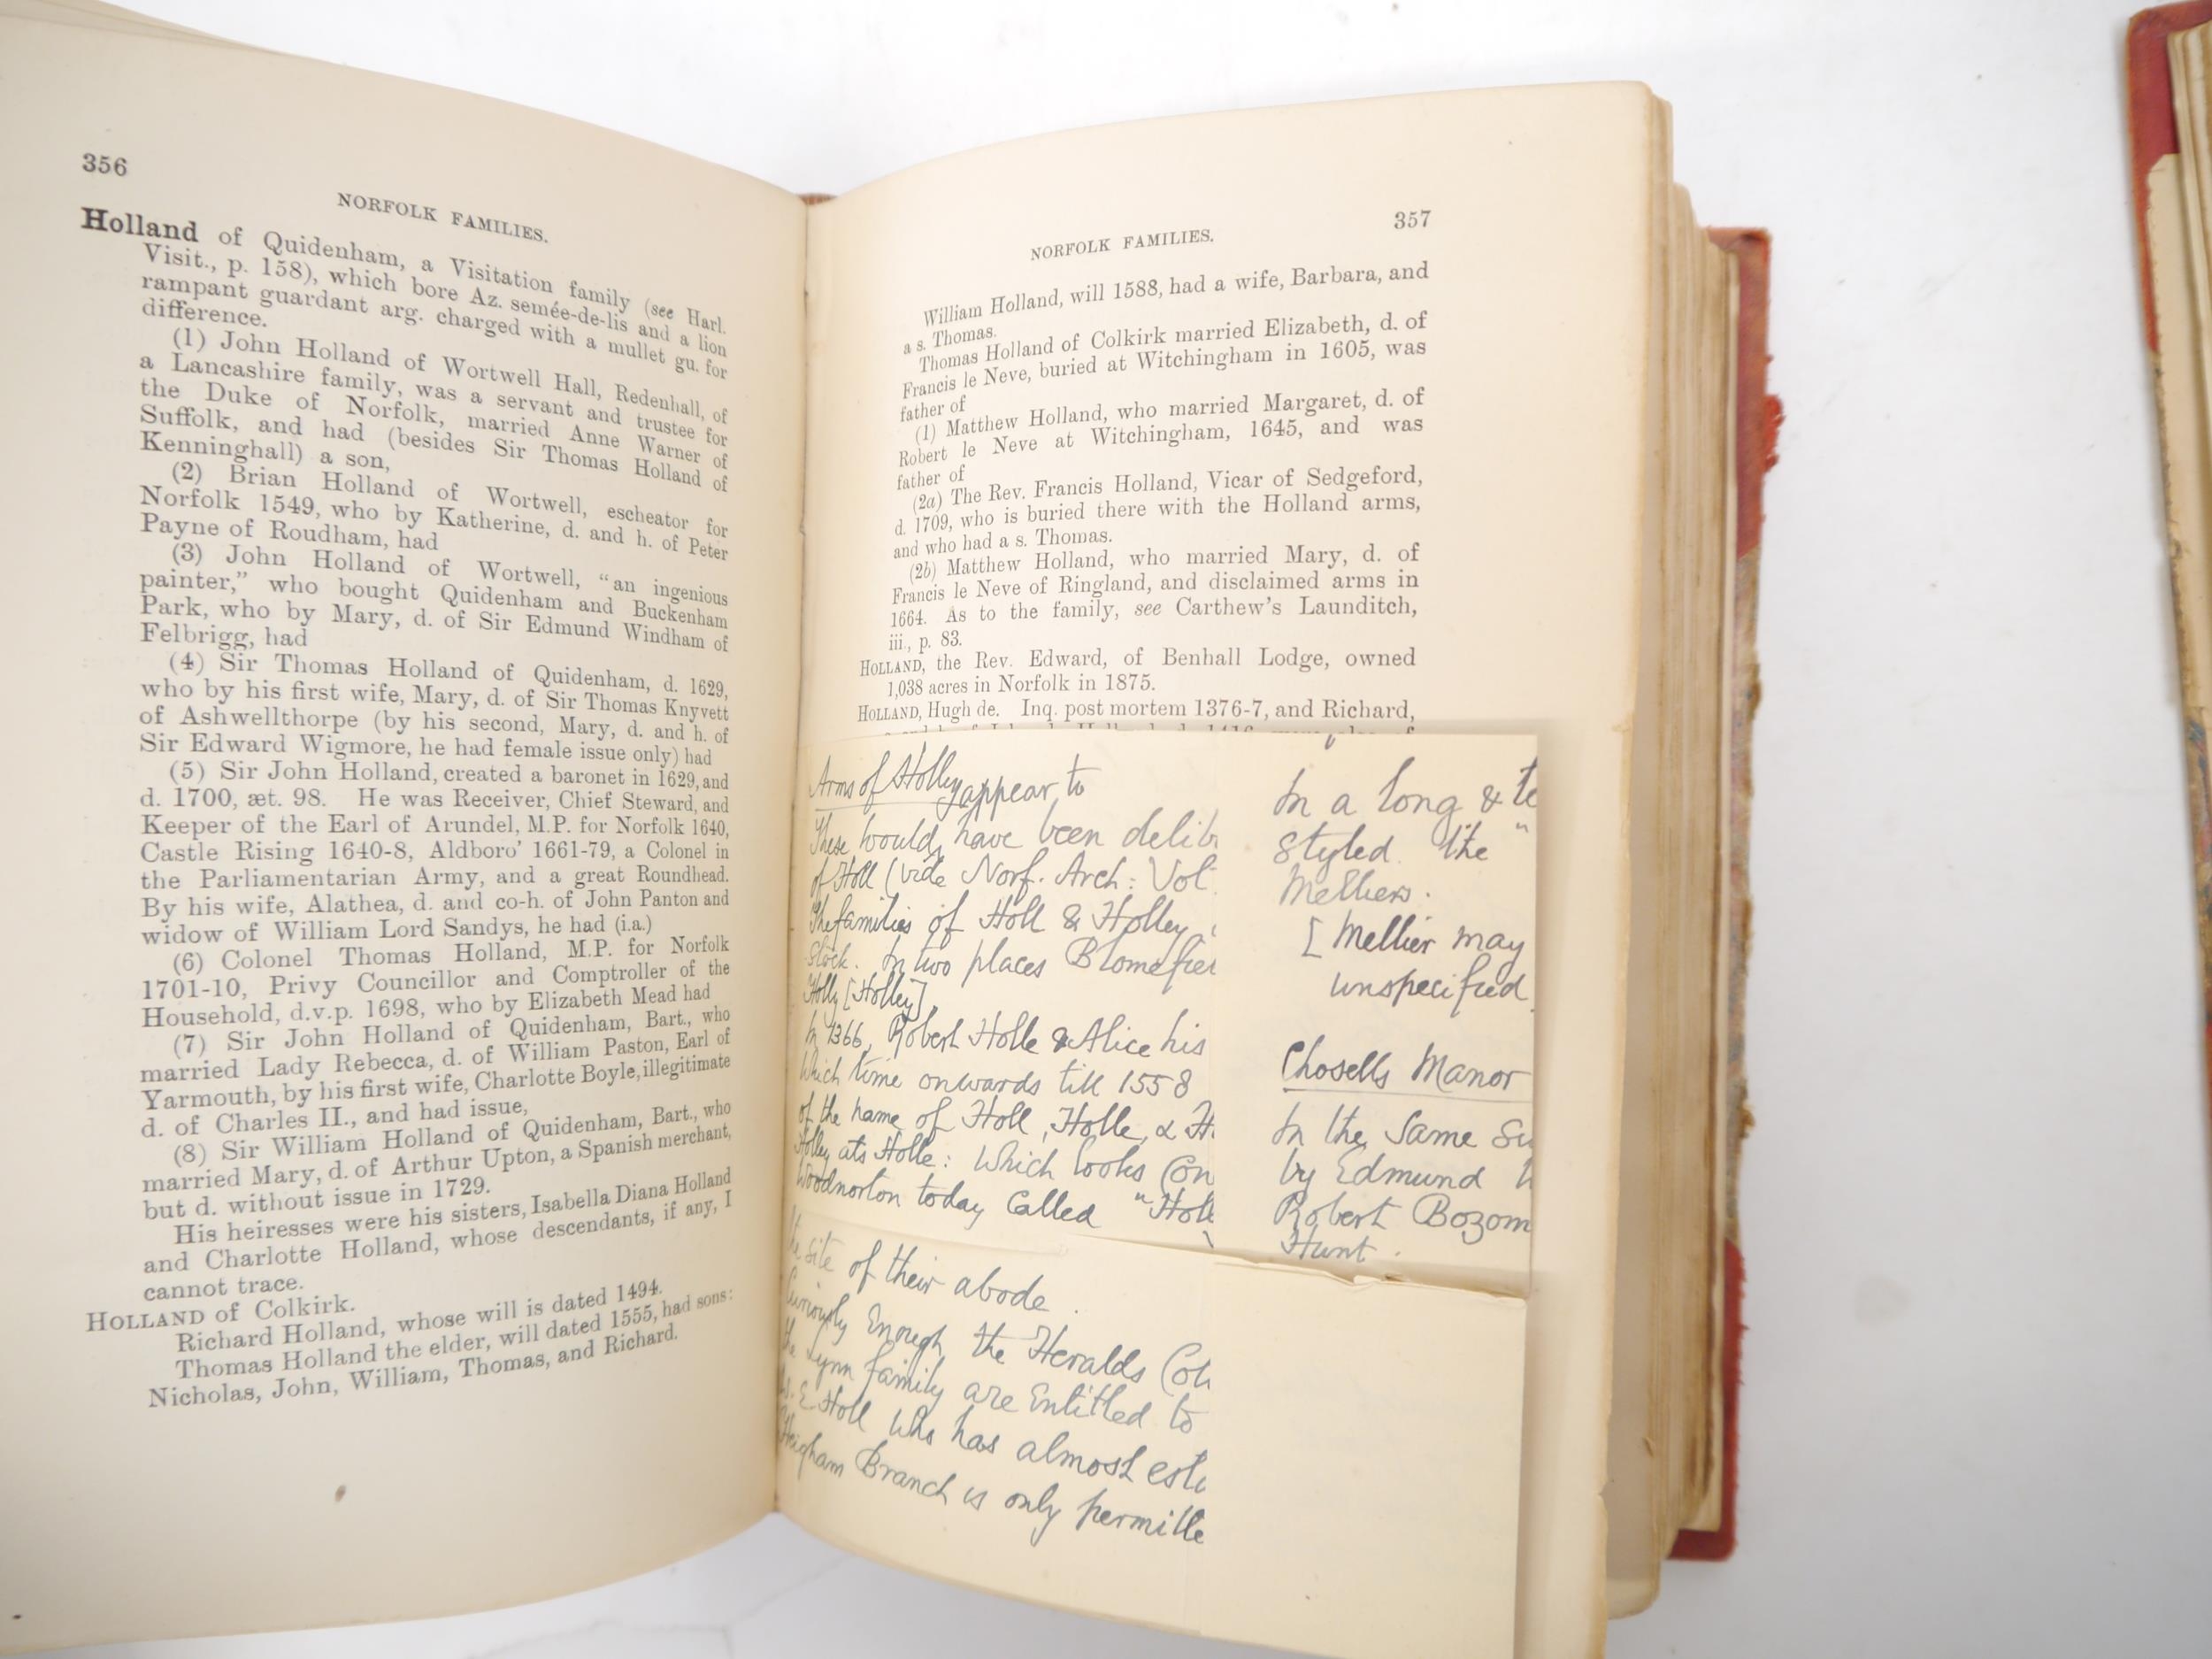 356
NORFOLK FAMILIES.
Holland of Quidenham, a Visitation family (see Harl.
Visit., p. 158), which bore Az. semée-de-lis and a lion
rampant guardant arg. charged with a mullet gu. for
difference.
(1) John Holland of Wortwell Hall, Redenhall, of
a Lancashire family, was a servant and trustee for
the Duke of Norfolk, married Anne Warner of
Suffolk, and had (besides Sir Thomas Holland of
Kenninghall) a son,
(2) Brian Holland of Wortwell, escheator for
Norfolk 1549, who by Katherine, d. and h. of Peter
Payne of Roudham, had
(3) John Holland of Wortwell, "an ingenious
painter," who bought Quidenham and Buckenham
Park, who by Mary, d. of Sir Edmund Windham of
Felbrigg, had
(4) Sir Thomas Holland of Quidenham, d. 1629,
who by his first wife, Mary, d. of Sir Thomas Knyvett
of Ashwellthorpe (by his second, Mary, d. and h. of
Sir Edward Wigmore, he had female issue only) had
(5) Sir John Holland, created a baronet in 1629, and
d. 1700, æt. 98. He was Receiver, Chief Steward, and
Keeper of the Earl of Arundel, M.P. for Norfolk 1640,
Castle Rising 1640-8, Aldboro' 1661-79, a Colonel in
the Parliamentarian Army, and a great Roundhead.
By his wife, Alathea, d. and co-h. of John Panton and
widow of William Lord Sandys, he had (i.a.)
(6) Colonel Thomas Holland, M.P. for Norfolk
1701-10, Privy Councillor and Comptroller of the
Household, d.v.p. 1698, who by Elizabeth Mead had
(7) Sir John Holland of Quidenham, Bart., who
married Lady Rebecca, d. of William Paston, Earl of
Yarmouth, by his first wife, Charlotte Boyle, illegitimate
d. of Charles II., and had issue,
(8) Sir William Holland of Quidenham, Bart., who
married Mary, d. of Arthur Upton, a Spanish merchant,
but d. without issue in 1729.
His heiresses were his sisters, Isabella Diana Holland
and Charlotte Holland, whose descendants, if any, I
cannot trace.
HOLLAND of Colkirk.
Richard Holland, whose will is dated 1494.
Thomas Holland the elder, will dated 1555, had sons:
Nicholas, John, William, Thomas, and Richard.
NORFOLK FAMILIES.
357
William Holland, will 1588, had a wife, Barbara, and
a s. Thomas.
Thomas Holland of Colkirk married Elizabeth, d. of
Francis le Neve, buried at Witchingham in 1605, was
father of
(1) Matthew Holland, who married Margaret, d. of
Robert le Neve at Witchingham, 1645, and was
father of
(2a) The Rev. Francis Holland, Vicar of Sedgeford,
d. 1709, who is buried there with the Holland arms,
and who had a s. Thomas.
(2b) Matthew Holland, who married Mary, d. of
Francis le Neve of Ringland, and disclaimed arms in
1664. As to the family, see Carthew's Launditch,
iii., p. 83.
HOLLAND, the Rev. Edward, of Benhall Lodge, owned
1,038 acres in Norfolk in 1875.
HOLLAND, Hugh de. Inq. post mortem 1376-7, and Richard,
Arms of Holley appear to
These would have been delib
of Holl (vide Norf. Arch: Vol
The families of Holl & Holley
Stock. In two places Blomefie
Holly [Holley]
In 1366, Robert Holle & Alice his
Which time onwards till 1558
of the name of Holl, Holle, & H
Holley als Holle: Which looks Con
Woodnorton today Called "Holl
the site of their abode.
Curiously Enough the Heralds Col
the Lynn family are Entitled to
E Holl who has almost est
Heigham Branch is only permitte
In a long & te
styled the "
Melliers.
[ Mellier may
unspecified
Chosells Manor
In the Same Su
by Edmund
Robert Bozom
Hunt.